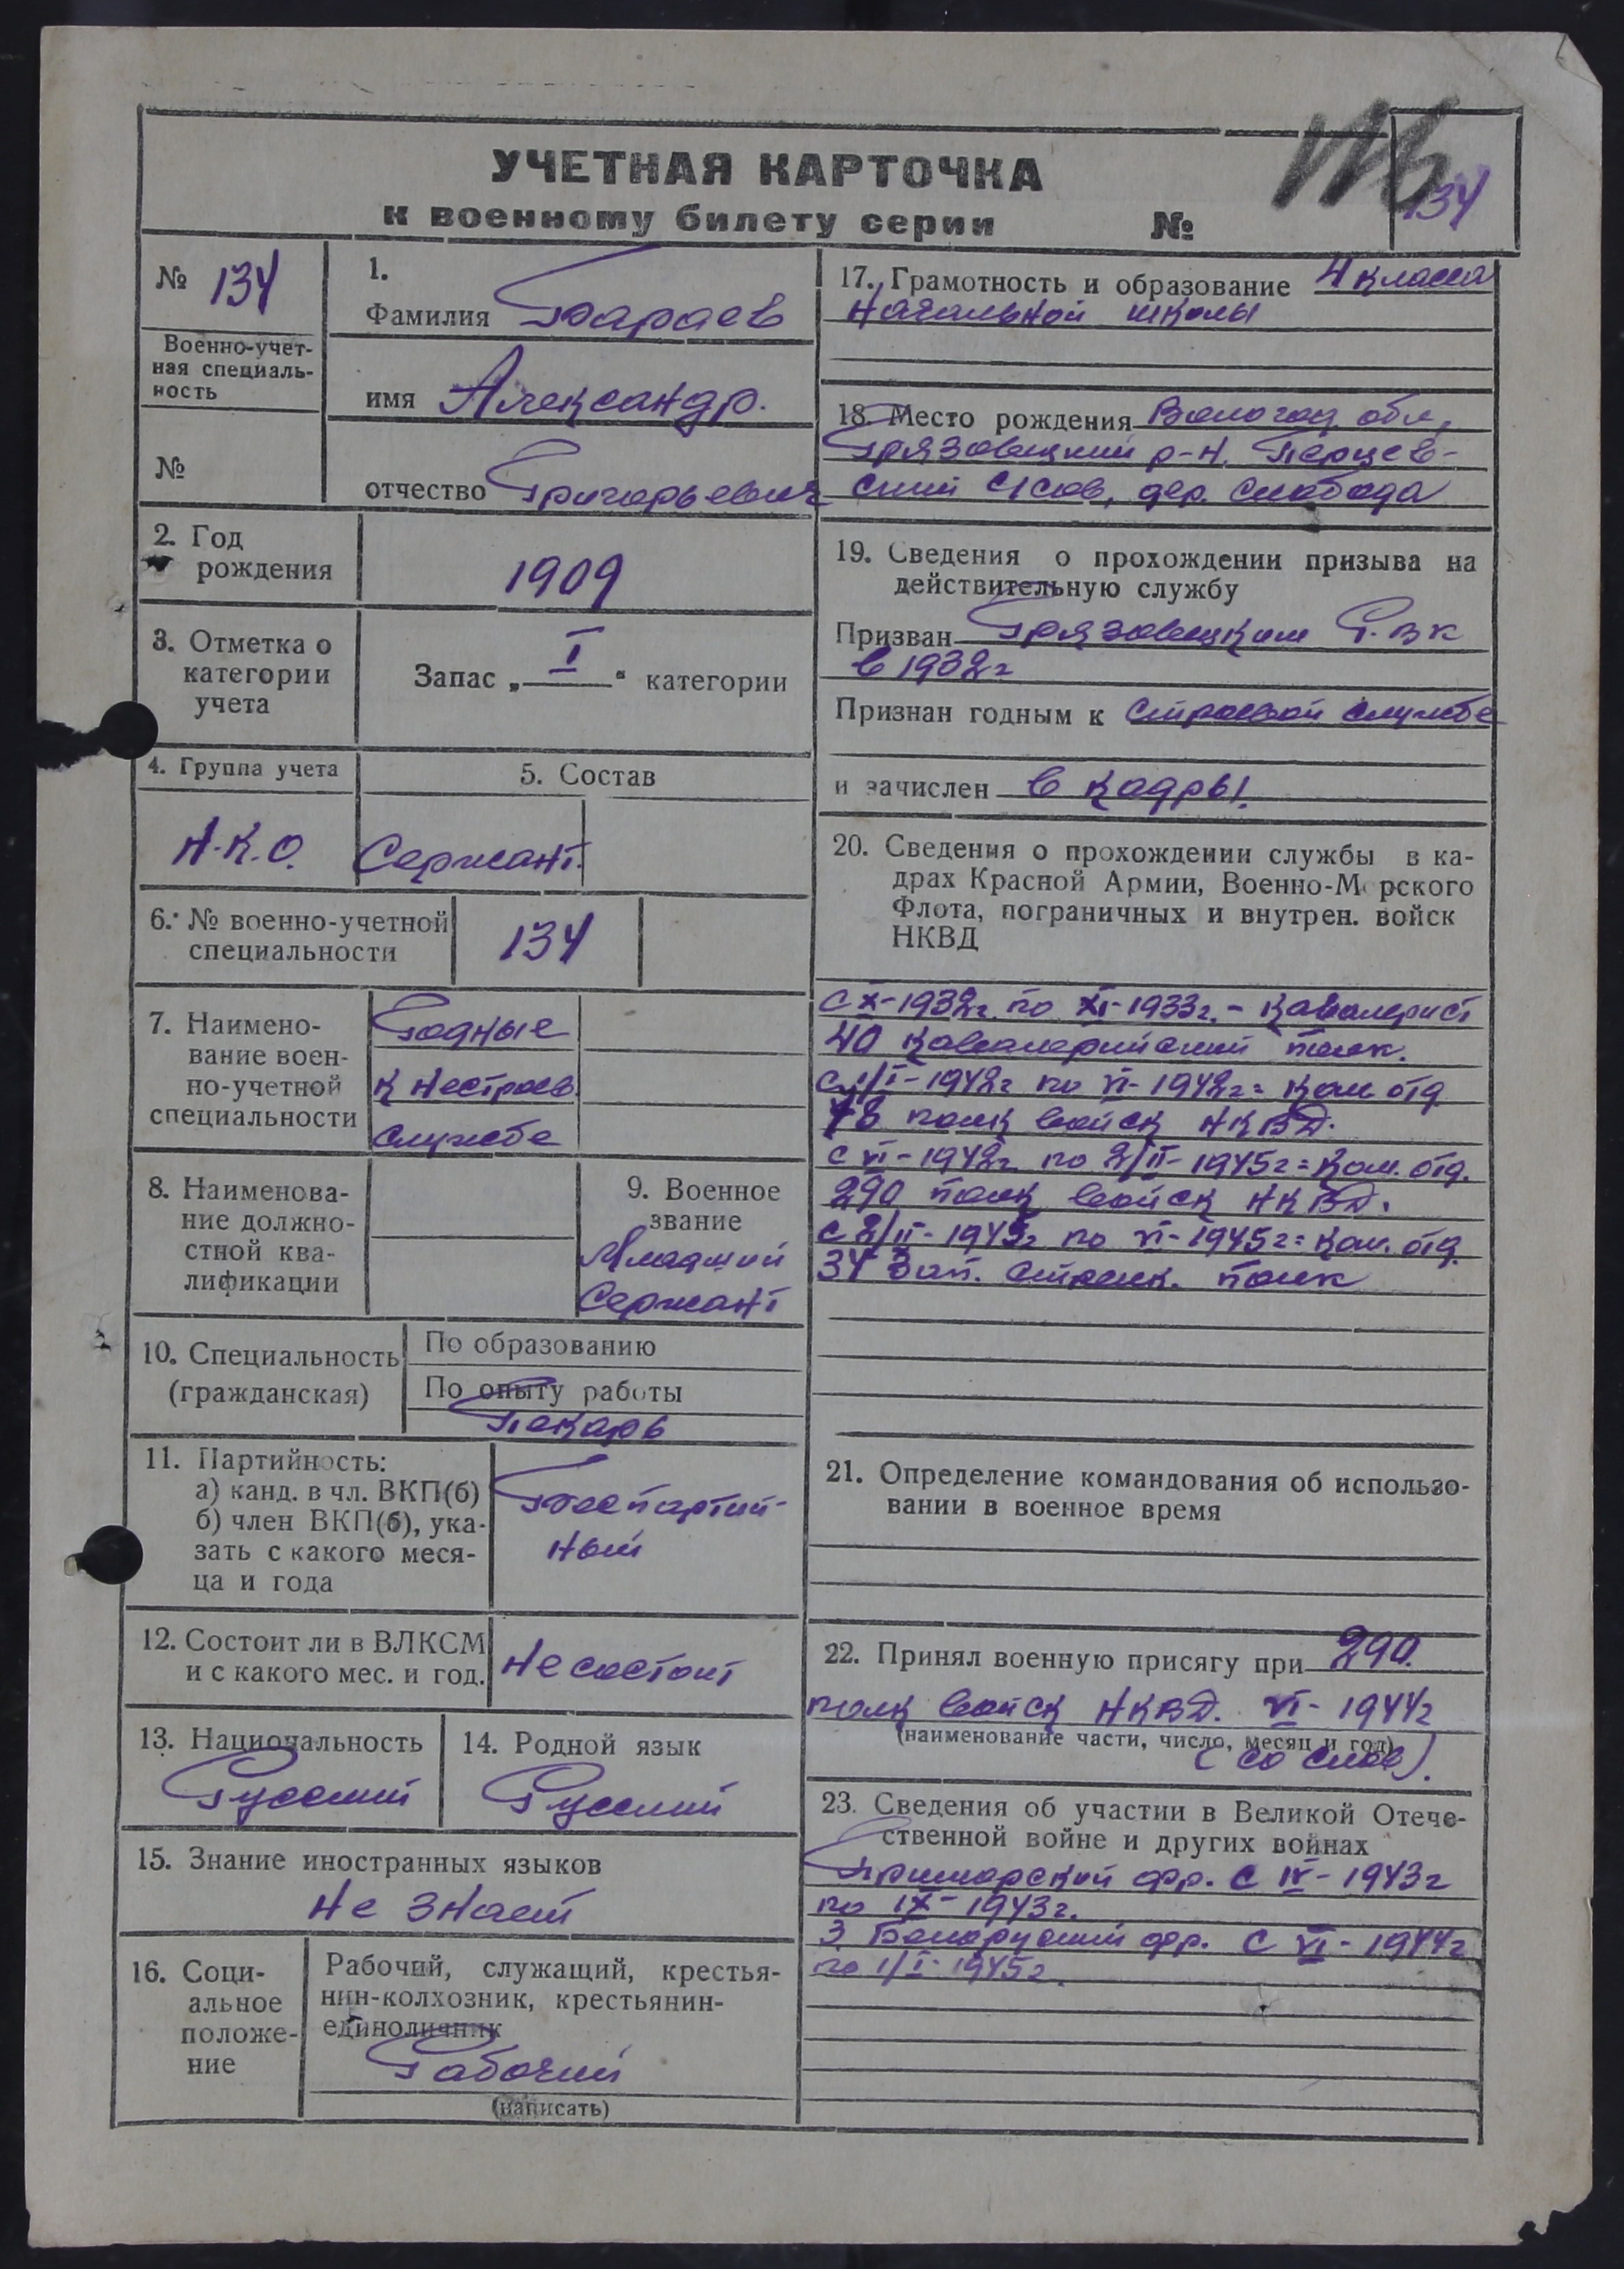 УЧЕТНАЯ КАРТОЧКА
к военному билету серии №
134
№ 134
Военно-учет-
ная специаль-
ность
№
1.
Фамилия Бараев
имя Александр.
отчество Григорьевич
2. Год
рождения
1909
3. Отметка о
категории
учета
Запас „ I " категории
4. Группа учета
Н.К.О.
5. Состав
Сержант.
6. № военно-учетной
специальности
134
7. Наимено-
вание воен-
но-учетной
специальности
Годные
к нестроев.
службе
8. Наименова-
ние должно-
стной ква-
лификации
9. Военное
звание
Младший
Сержант
10. Специальность
(гражданская)
По образованию
По опыту работы
Пекарь
11. Партийность:
а) канд. в чл. ВКП(б)
б) член ВКП(б), ука-
зать с какого меся-
ца и года
Беспартий-
ный
12. Состоит ли в ВЛКСМ
и с какого мес. и год.
Не состоит
13. Национальность
Русский
14. Родной язык
Русский
15. Знание иностранных языков
Не знает
16. Соци-
альное
положе-
ние
Рабочий, служащий, крестья-
нин-колхозник, крестьянин-
единоличник
Рабочий
(написать)
17. Грамотность и образование 4 класса
начальной школы
18. Место рождения Вологод. обл,
Грязовецкий р-н. Перцев-
ский с/сов, дер. Слобода
19. Сведения о прохождении призыва на
действительную службу
Призван Грязовецким Р.ВК
в 1932г
Признан годным к строевой службе
и зачислен в кадры.
20. Сведения о прохождении службы в ка-
драх Красной Армии, Военно-Морского
Флота, пограничных и внутрен. войск
НКВД
с X-1932г. по XI-1933г. - кавалерист
40 кавалерийский полк.
с 1/I-1942г по VI-1942г = ком. отд
78 полк войск НКВД.
с VI-1942г по 2/II-1945г = ком. отд.
290 полк войск НКВД.
с 2/II-1945г по VI-1945г = ком. отд.
34 зап. стрелк. полк
21. Определение командования об использо-
вании в военное время
22. Принял военную присягу при 290.
полк войск НКВД. VI-1944г
(наименование части, число, месяц и год)
(со слов).
23. Сведения об участии в Великой Отече-
ственной войне и других войнах
Приморский фр. с IV-1943г
по IX-1943г.
3 Белорусский фр. с VI-1944г
по 1/I-1945г.